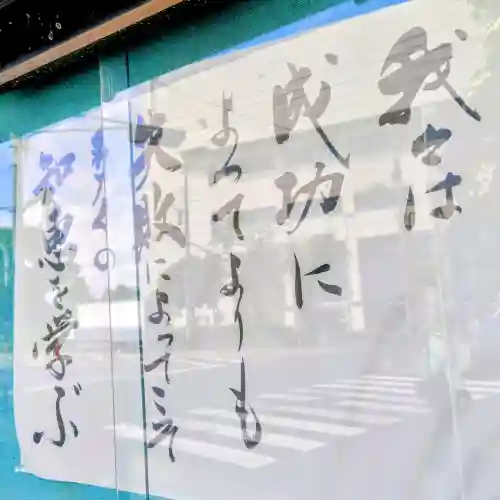 我らは
成功に
よってよりも
失敗によってこそ
多くの
知恵を学ぶ